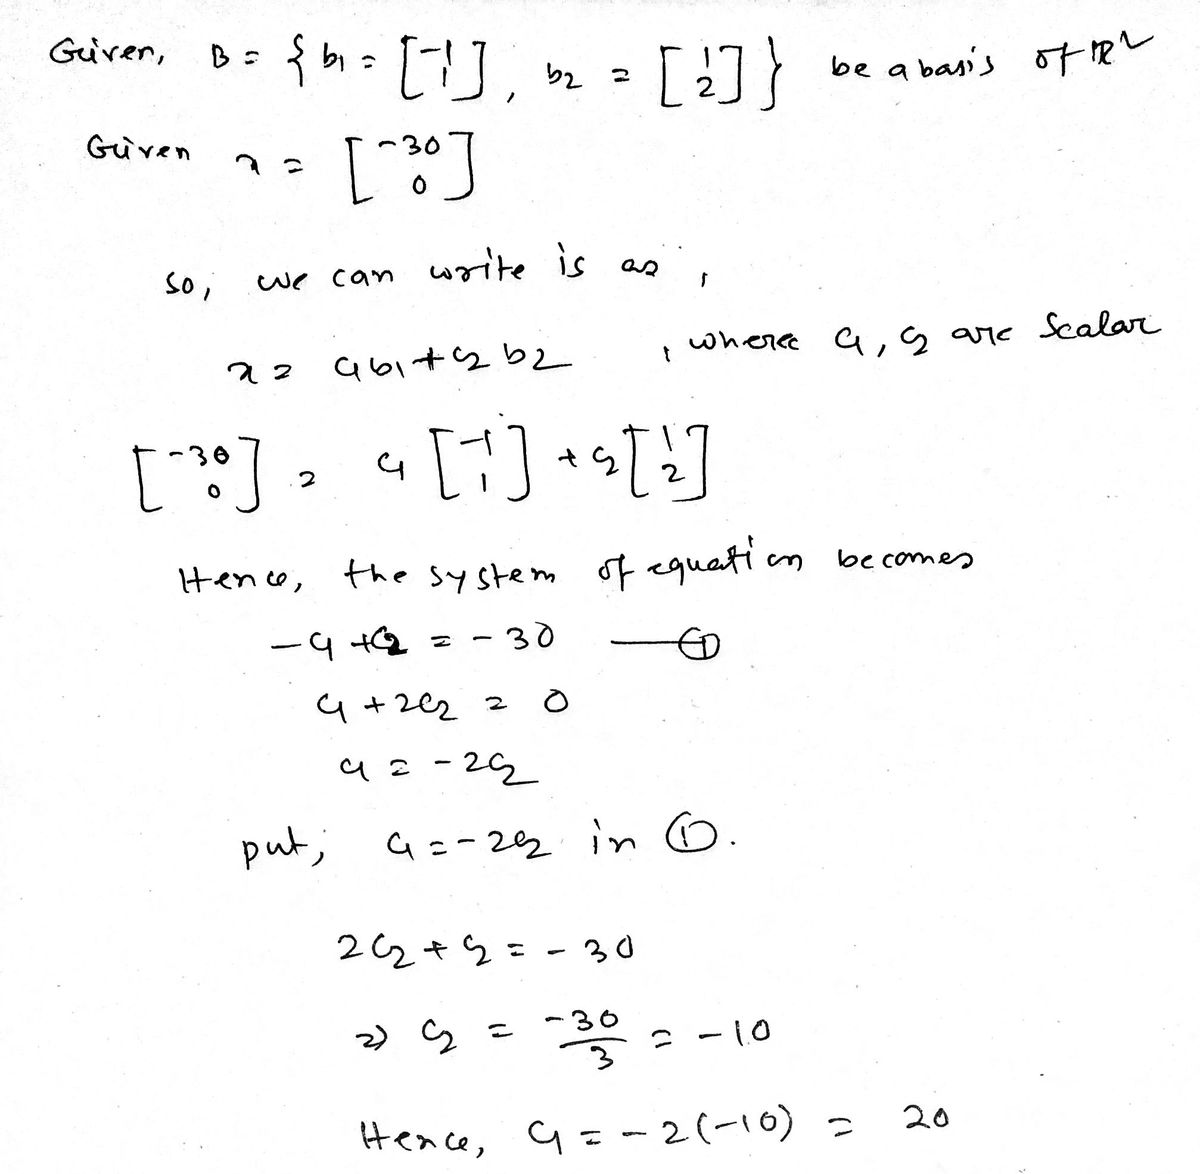 Given, B = { b1 = [-1 1], b2 = [1 2] } be a basis of ℝ²
Given x = [-30 0]
so, we can write is as,
x = c1b1 + c2b2 , where c1, c2 are Scalar
[-30 0] = c1 [-1 1] + c2 [1 2]
Hence, the system of equation becomes
-c1 + c2 = -30 — ①
c1 + 2c2 = 0
c1 = -2c2
put, c1 = -2c2 in ①.
2c2 + c2 = -30
⇒ c2 = -30/3 = -10
Hence, c1 = -2(-10) = 20